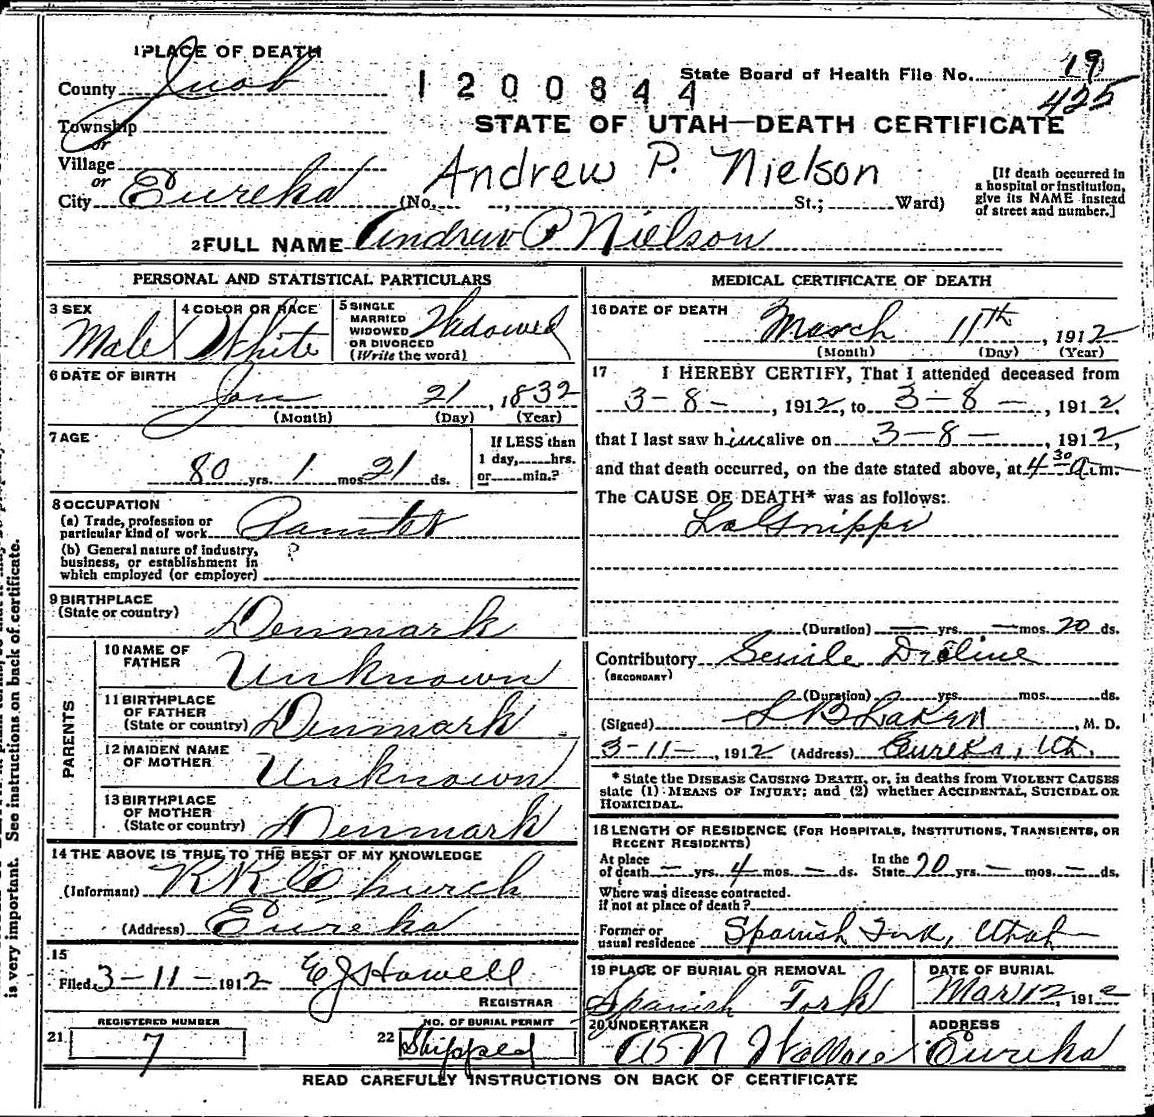 1 PLACE OF DEATH
County Juab
1200844
State Board of Health File No. 19
425
Township
or
STATE OF UTAH—DEATH CERTIFICATE
Village
or
Andrew P. Nielson
City Eureka (No. , St.; Ward)
[If death occurred in a hospital or institution, give its NAME instead of street and number.]
2 FULL NAME Andrew P Nielson
PERSONAL AND STATISTICAL PARTICULARS
3 SEX
Male
4 COLOR OR RACE
White
5 SINGLE
MARRIED
WIDOWED
OR DIVORCED
(Write the word)
Widowed
6 DATE OF BIRTH
Jan 21, 1832
(Month) (Day) (Year)
7 AGE
80 yrs. 1 mos. 21 ds.
If LESS than
1 day, hrs.
or min.?
8 OCCUPATION
(a) Trade, profession or
particular kind of work Painter
(b) General nature of industry,
business, or establishment in
which employed (or employer)
?
9 BIRTHPLACE
(State or country)
Denmark
PARENTS
10 NAME OF
FATHER Unknown
11 BIRTHPLACE
OF FATHER
(State or country) Denmark
12 MAIDEN NAME
OF MOTHER Unknown
13 BIRTHPLACE
OF MOTHER
(State or country) Denmark
14 THE ABOVE IS TRUE TO THE BEST OF MY KNOWLEDGE
(Informant) Church
(Address) Eureka
15
Filed 3-11-1912 E J Howell
REGISTRAR
REGISTERED NUMBER
21 7
NO. OF BURIAL PERMIT
22 Shipped
MEDICAL CERTIFICATE OF DEATH
16 DATE OF DEATH
March 11th, 1912
(Month) (Day) (Year)
17 I HEREBY CERTIFY, That I attended deceased from
3-8-, 1912, to 3-8-, 1912,
that I last saw him alive on 3-8-, 1912,
and that death occurred, on the date stated above, at 4 30 a.m.
The CAUSE OF DEATH* was as follows:
La Grippe
(Duration) — yrs. — mos. 20 ds.
Contributory Senile Decline
(SECONDARY)
(Duration) yrs. mos. ds.
(Signed) , M. D.
3-11-, 1912 (Address) Eureka, Utah.
* State the DISEASE CAUSING DEATH, or, in deaths from VIOLENT CAUSES
state (1) MEANS OF INJURY; and (2) whether ACCIDENTAL, SUICIDAL OR
HOMICIDAL.
18 LENGTH OF RESIDENCE (FOR HOSPITALS, INSTITUTIONS, TRANSIENTS, OR
RECENT RESIDENTS)
At place
of death — yrs. 4 mos. — ds.
In the
State yrs. — mos. — ds.
Where was disease contracted.
if not at place of death?
Former or
usual residence Spanish Fork, Utah
19 PLACE OF BURIAL OR REMOVAL
Spanish Fork
DATE OF BURIAL
Mar 12, 1912
20 UNDERTAKER
Wallace
ADDRESS
Eureka
READ CAREFULLY INSTRUCTIONS ON BACK OF CERTIFICATE
is very important. See instructions on back of certificate.